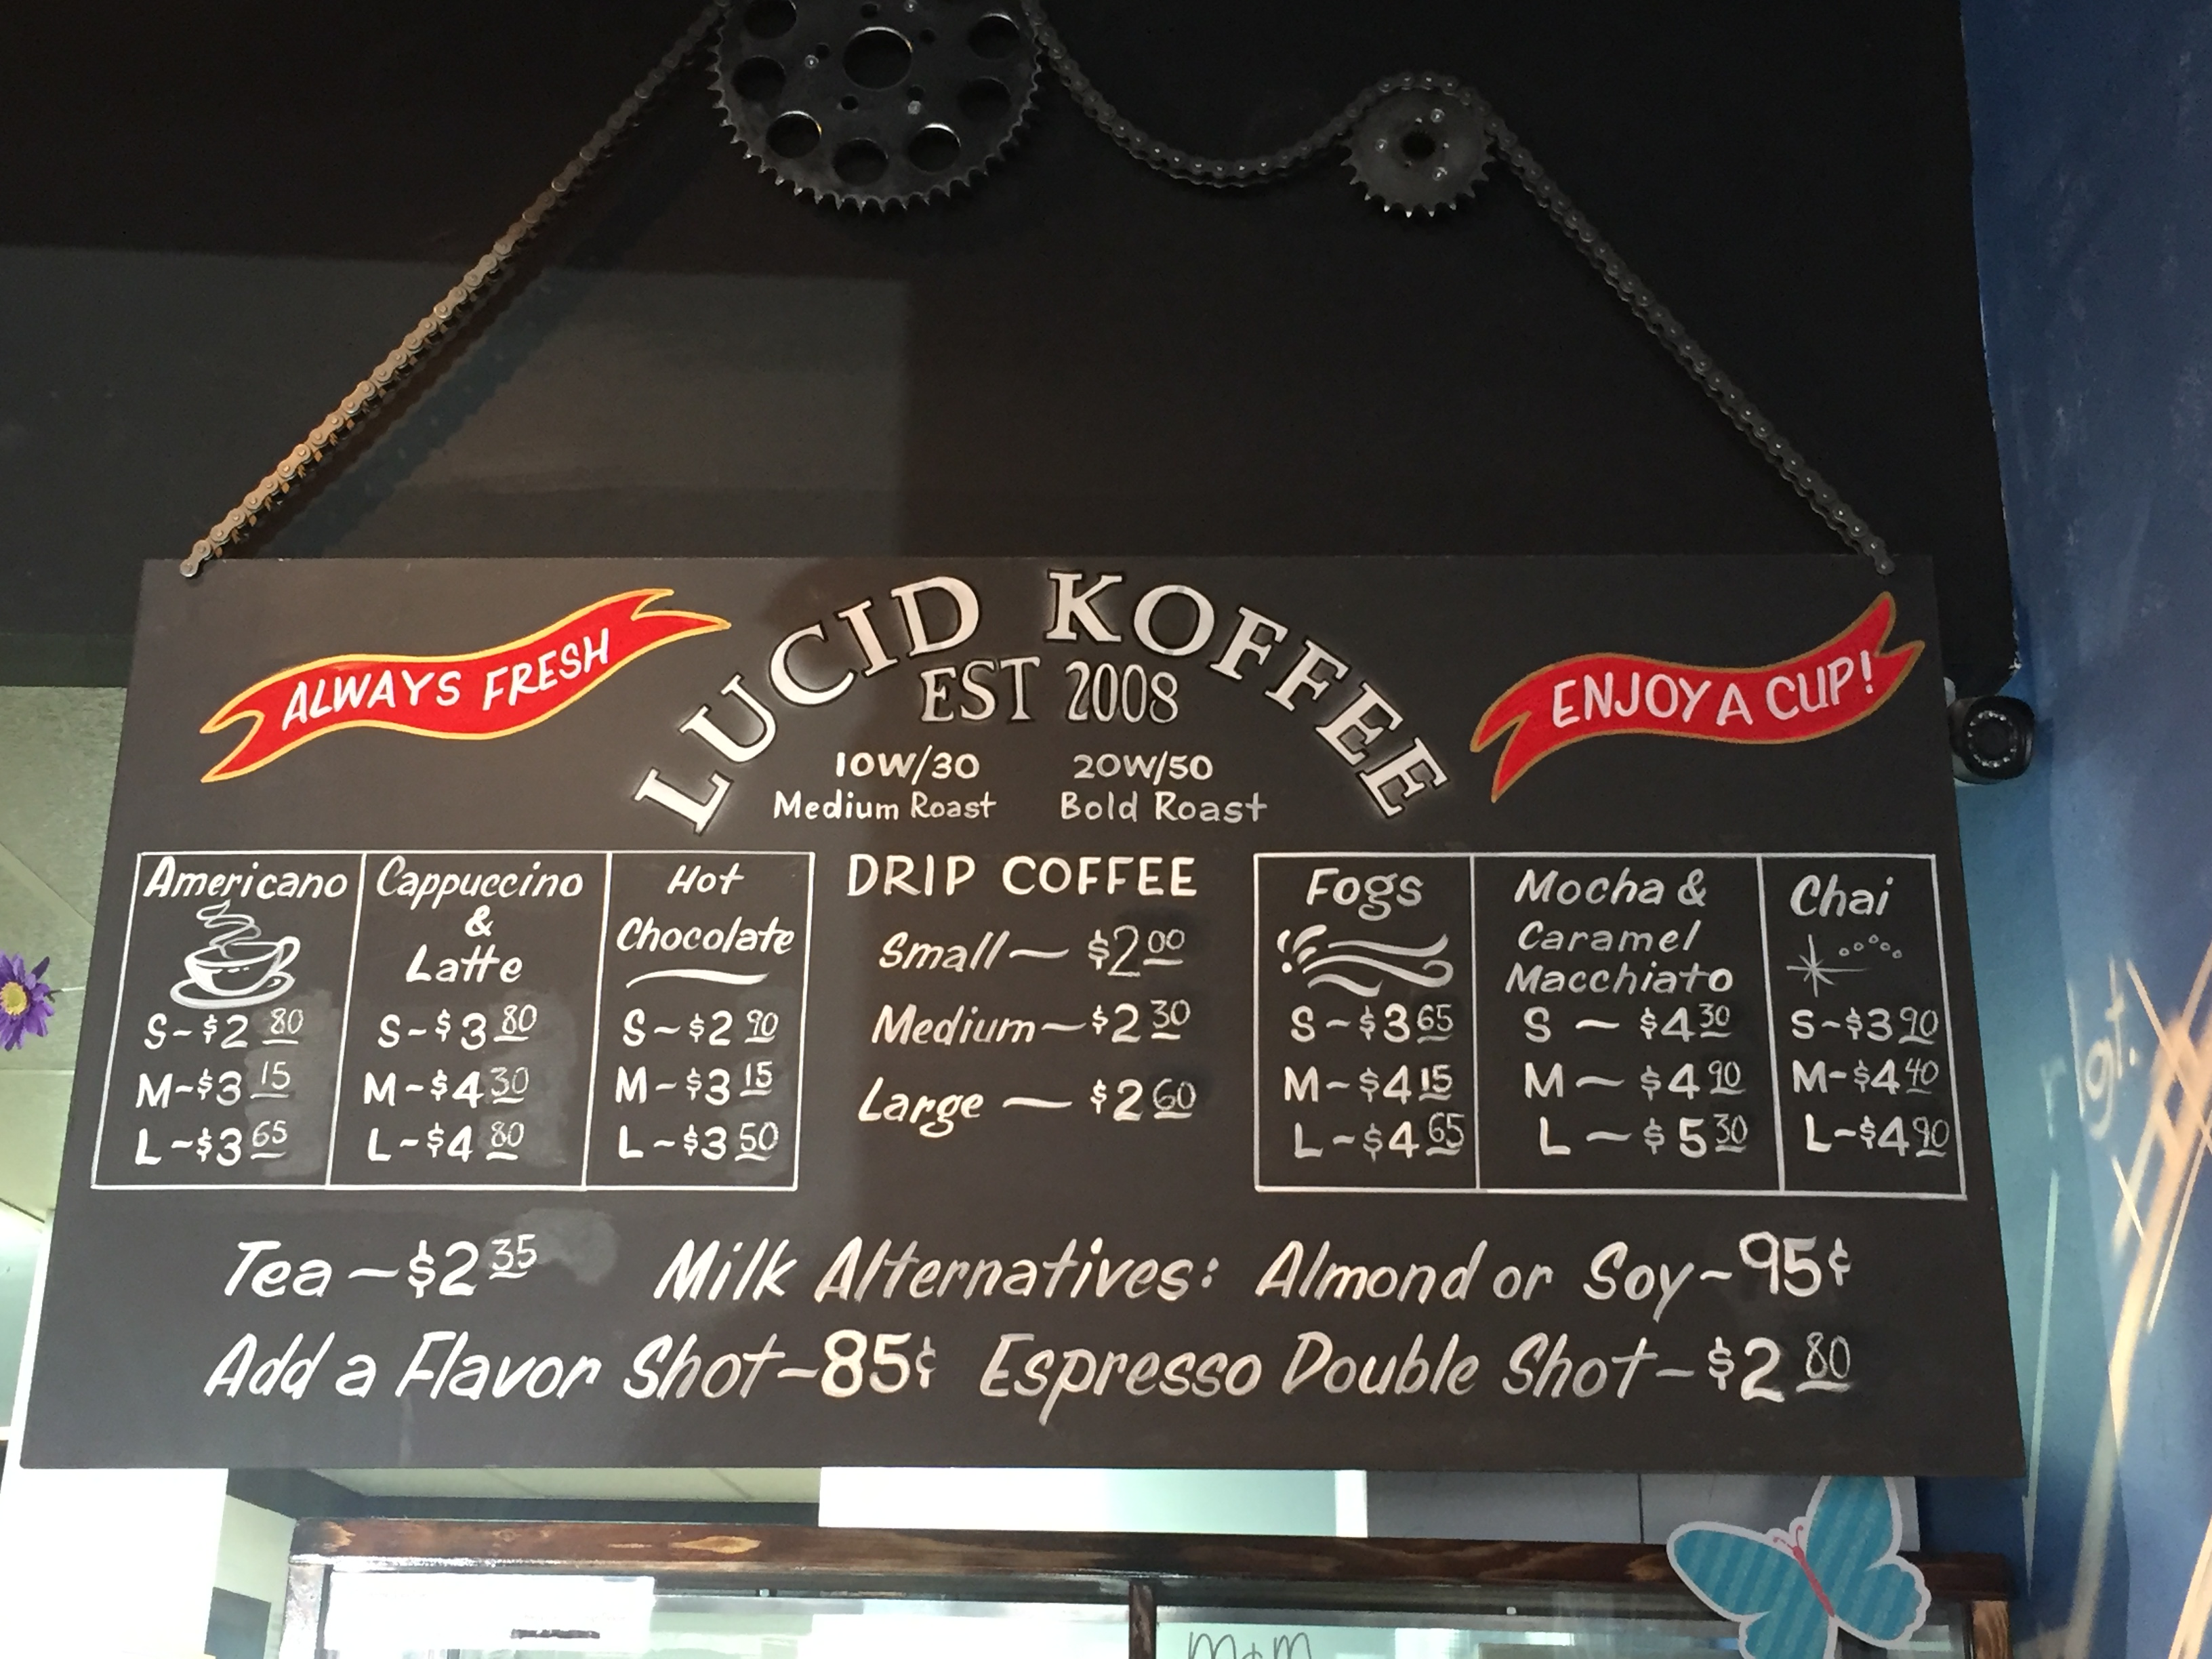 ALWAYS FRESH
LUCID KOFFEE
EST 2008
ENJOY A CUP!
10W/30 20W/50
Medium Roast Bold Roast
Americano
S~$2 80
M~$3 15
L~$3 65
Cappuccino
&
Latte
S~$3 80
M~$4 30
L~$4 80
Hot
Chocolate
S~$2 90
M~$3 15
L~$3 50
DRIP COFFEE
Small~$2 00
Medium~$2 30
Large~$2 60
Fogs
S~$3 65
M~$4 15
L~$4 65
Mocha &
Caramel
Macchiato
S~$4 30
M~$4 90
L~$5 30
Chai
S~$3 90
M~$4 40
L~$4 90
Tea~$2 35 Milk Alternatives: Almond or Soy~95¢
Add a Flavor Shot~85¢ Espresso Double Shot~$2 80